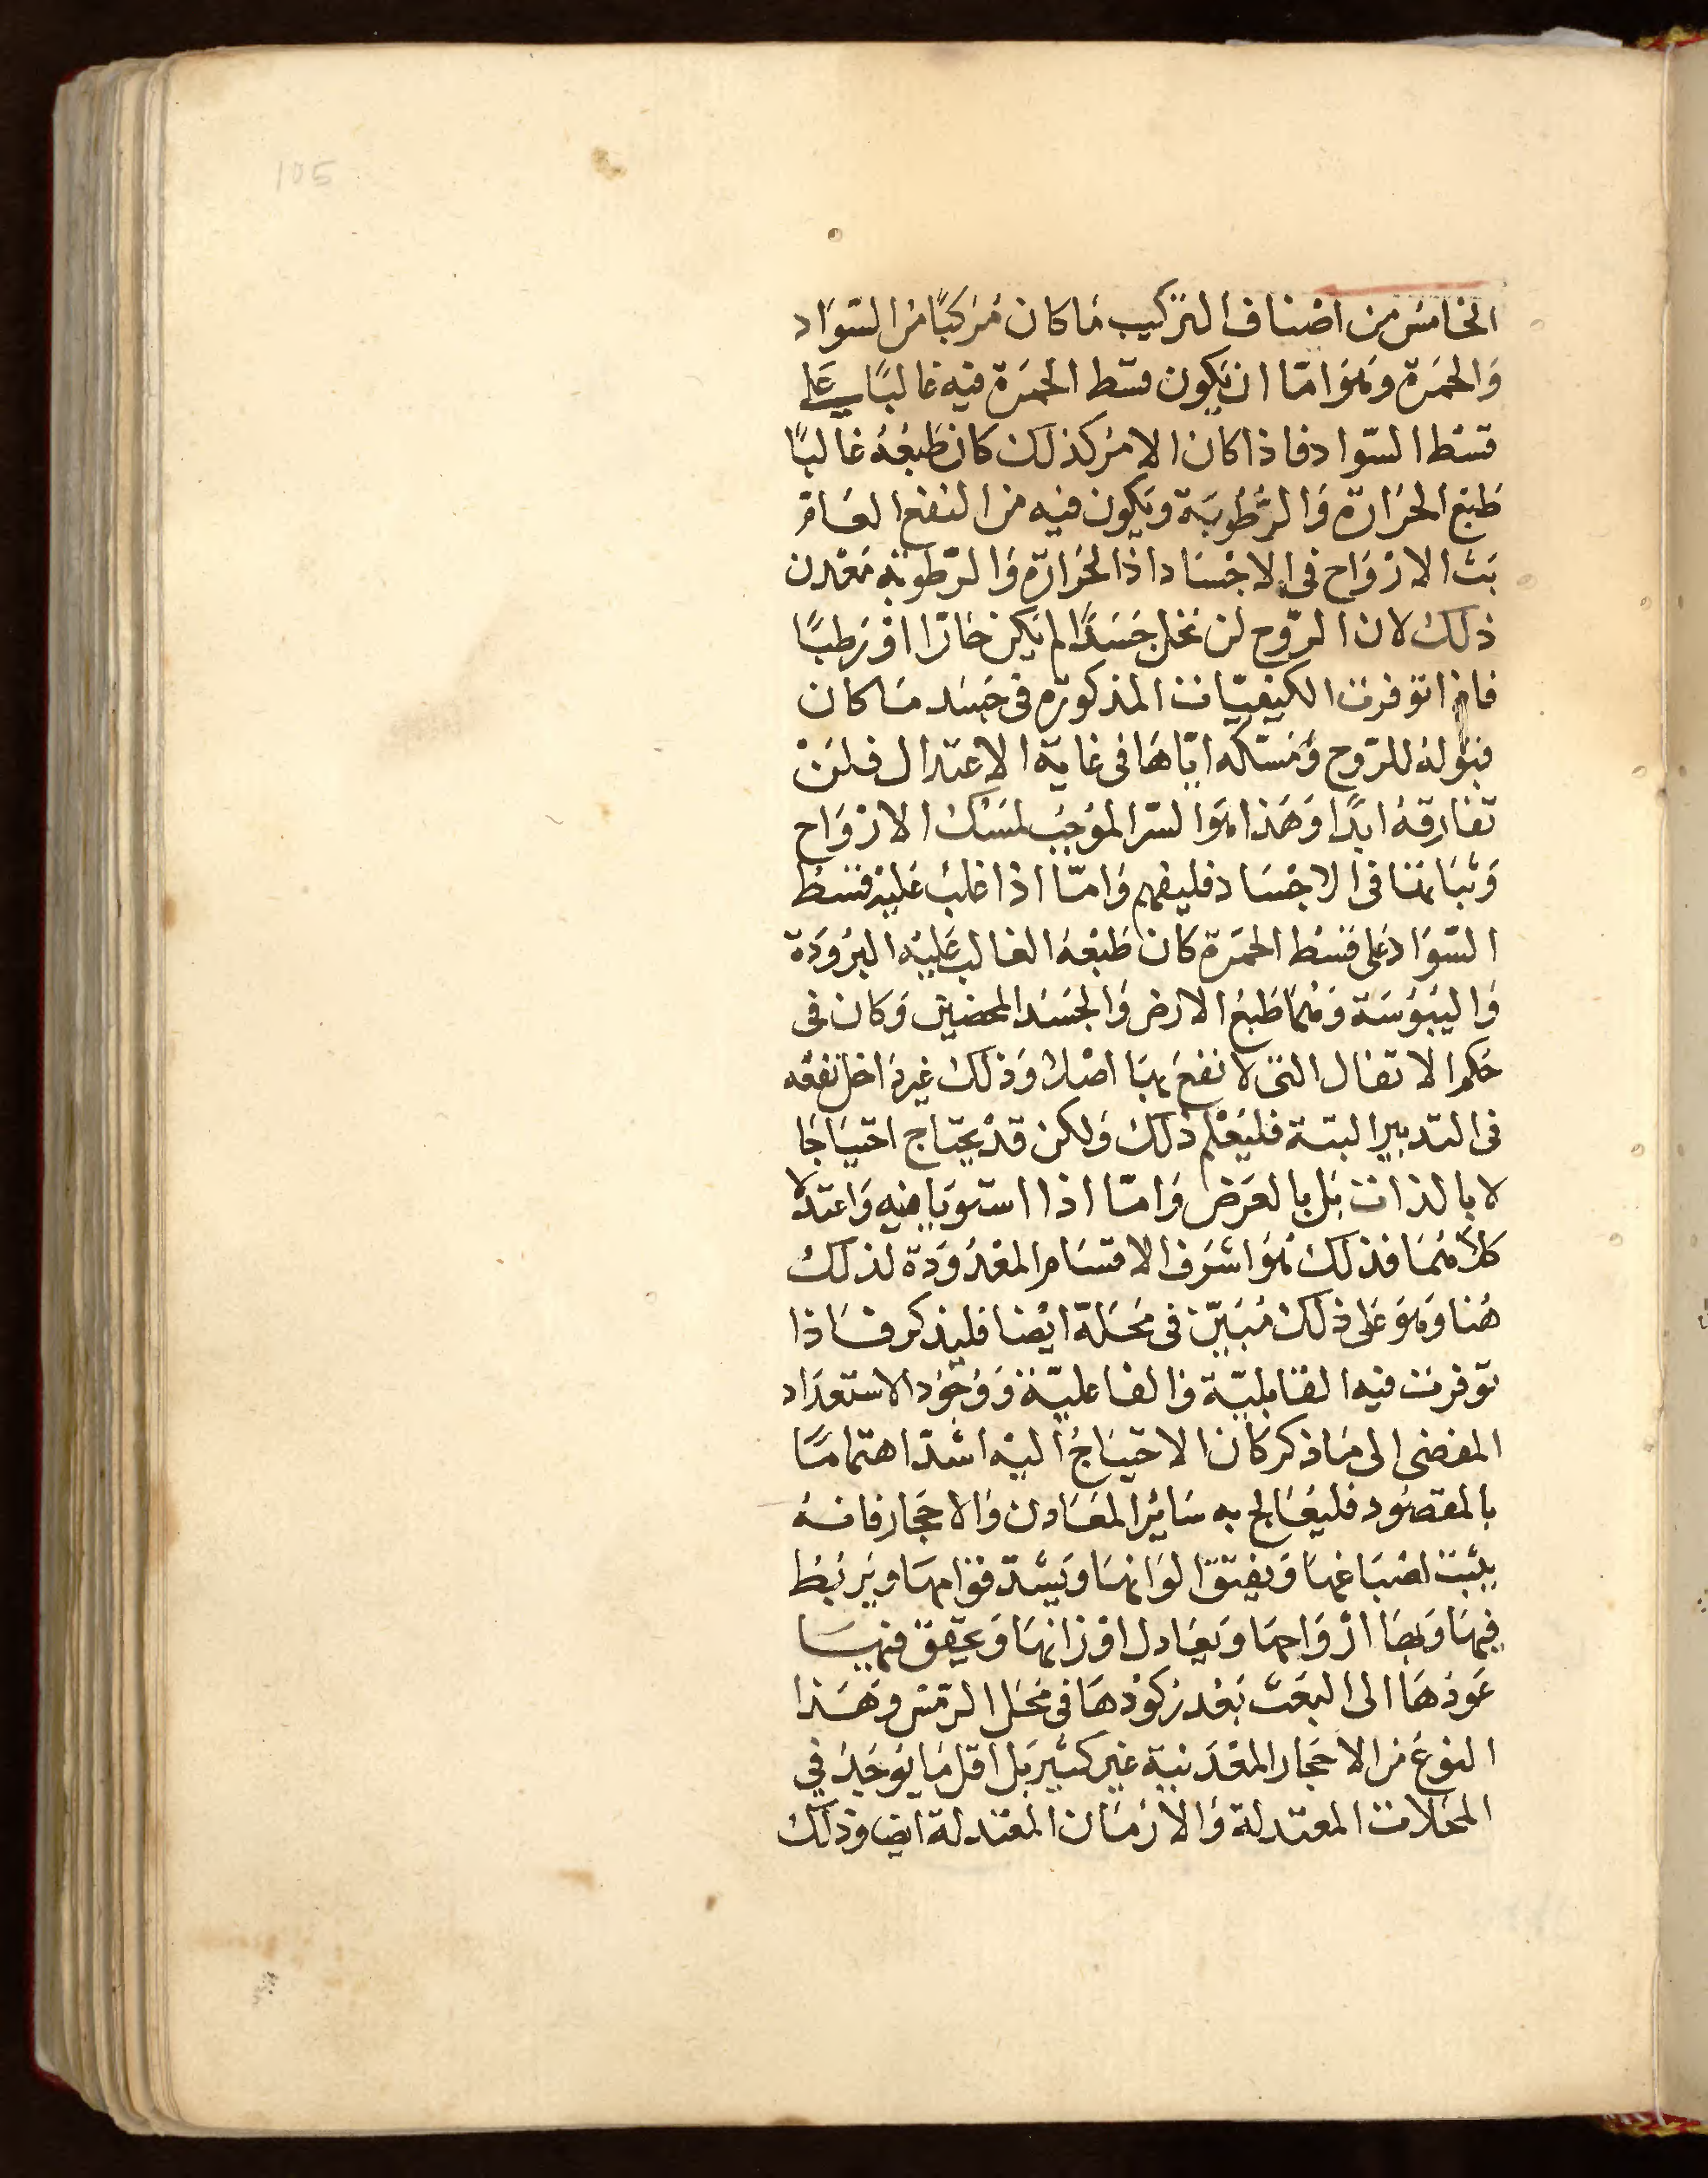 105
الخامس من اصناف التركيب ما كان مركبًا من السّواد
والحمرة وهو امّا ان يكون قسط الحمرة فيه غالبًا على
قسط السّواد فاذا كان الامر كذلك كان طبعه غالبًا
طبع الحرارة والرّطوبة ويكون فيه من النفع العام
بث الارواح في الاجساد اذ الحرارة والرّطوبة معدن
ذلك لان الرّوح لن تحل جسدًا لم يكن حارّا او رطبًا
فاذا توفرت الكيفيّات المذكورة في جسد ما كان
قبوله للرّوح ومسكه ايّاها في غاية الاعتدال فلن
تفارقه ابدًا وهذا هو السّر الموجب لمسك الارواح
وثباتها في الاجساد فليفهم وامّا اذا غلب عليه قسط
السّواد على قسط الحمرة كان طبعه الغالب عليه البرودة
واليبوسة وهما طبع الارض والجسد المحضين وكان في
حكم الاثفال التي لا نفع بها اصلا وذلك غير داخل نفعه
في التدبير البتة فليعلم ذلك ولكن قد يحتاج احتياجا
لا بالذات بل بالعرض وامّا اذا استويا فيه واعتدلا
كلاهما فذلك هو اشرف الاقسام المعدودة لذلك
هنا وهو على ذلك مبيّن في محلّه ايضا فليذكر فاذا
توفرت فيه القابليّة والفاعليّة ووجود الاستعداد
المفضي الى ما ذكر كان الاحتياج اليه اشدّ اهتمامًا
بالمقصود فليعالج به سائر المعادن والاحجار فانه
يثبت اصباغها ويفتق الوانها ويشدّ قوامها ويربط
فيها وبها ارواحها ويعادل اوزانها ويحقق فيها
عودها الى البعث بعد ركودها في محل الرّمس وهذا
النوع من الاحجار المعدنية غير كثير بل اقل ما يوجد في
المحلات المعتدلة والازمان المعتدلة ايضا وذلك